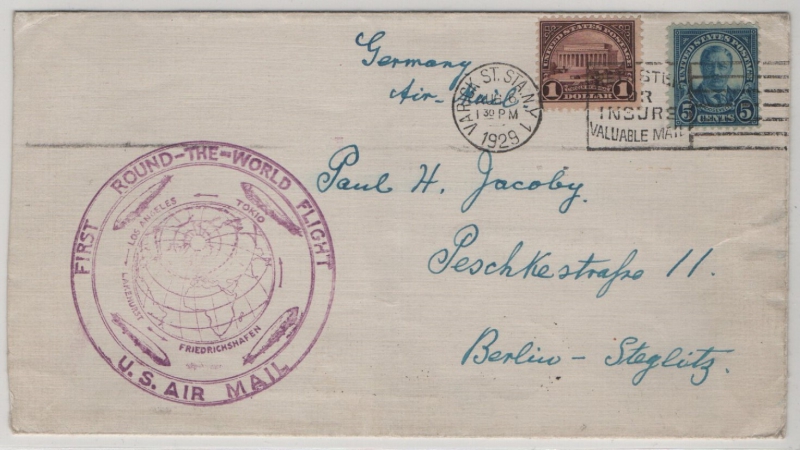 Germany
Air-Mail
VARICK ST. STA. N.Y. 1
AUG 6
1 30 PM
1929
UNITED STATES POSTAGE
1 1
DOLLAR
UNITED STATES POSTAGE
5 5
CENTS
INSURE
VALUABLE MAIL
Paul H. Jacoby.
Peschkestraße 11.
Berlin - Steglitz.
FIRST ROUND-THE-WORLD FLIGHT
LOS ANGELES
TOKIO
LAKEHURST
FRIEDRICHSHAFEN
U.S. AIR MAIL